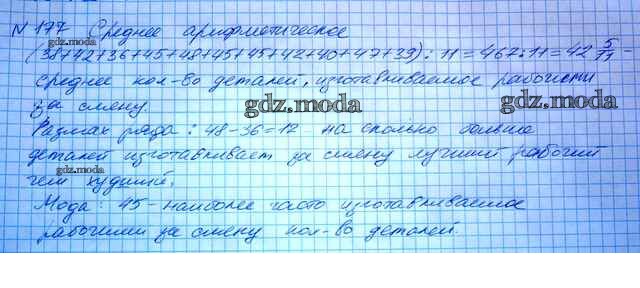 N 177 Среднее арифметическое
(38+42+36+45+48+45+45+42+40+47+39) : 11 = 467 : 11 = 42 5/11 -
среднее кол-во деталей, изготавливаемое рабочими
за смену.
gdz.moda
gdz.moda
gdz.moda
Размах ряда : 48-36=12 на сколько больше
деталей изготавливает за смену лучший рабочий
gdz.moda
чем худший.
Мода : 45 - наиболее часто изготавливаемое
рабочими за смену кол-во деталей.